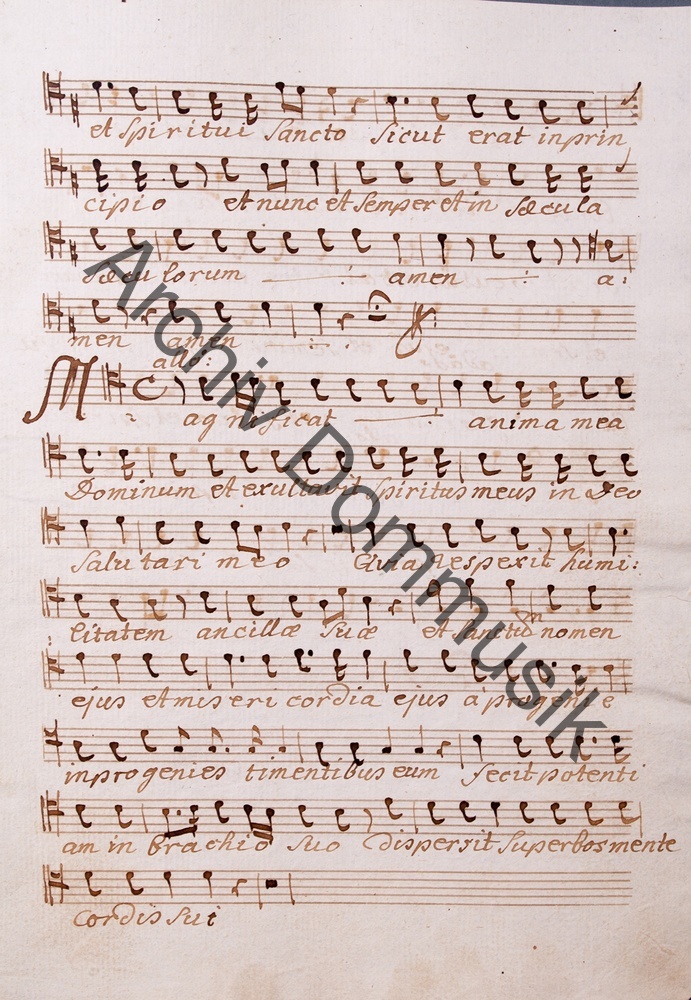 et spiritui Sancto sicut erat in prin
cipio et nunc et semper et in sæcula
sæculorum amen a:
men amen
all:
Magnificat anima mea
Dominum et exultavit spiritus meus in Deo
Salutari meo Quia respexit humi:
litatem ancillæ suæ et sanctum nomen
ejus et miseri cordia ejus a progeni e
in progenies timentibus eum fecit potenti
am in brachio suo dispersit superbos mente
cordis sui
Archiv Dommusik